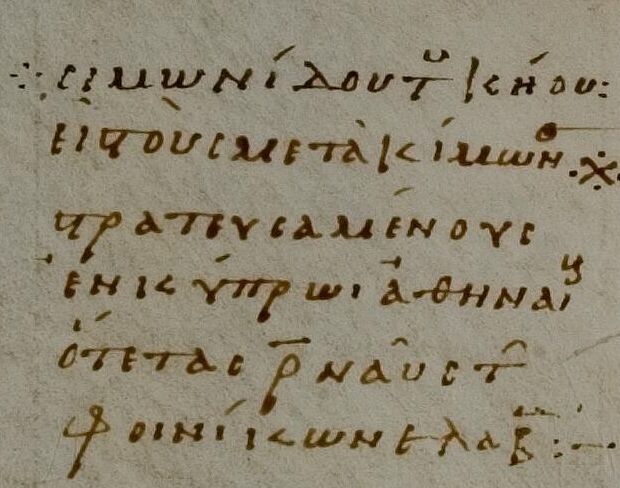 σιμωνίδου τ κήου:
εἰς τοὺς μετὰ κίμων
στρατευσαμένους
ἐν κύπρωι ἀθηναί
ὅτε τὰς ρ̄ ναῦς τ
φοινίκων ἔλαβ: